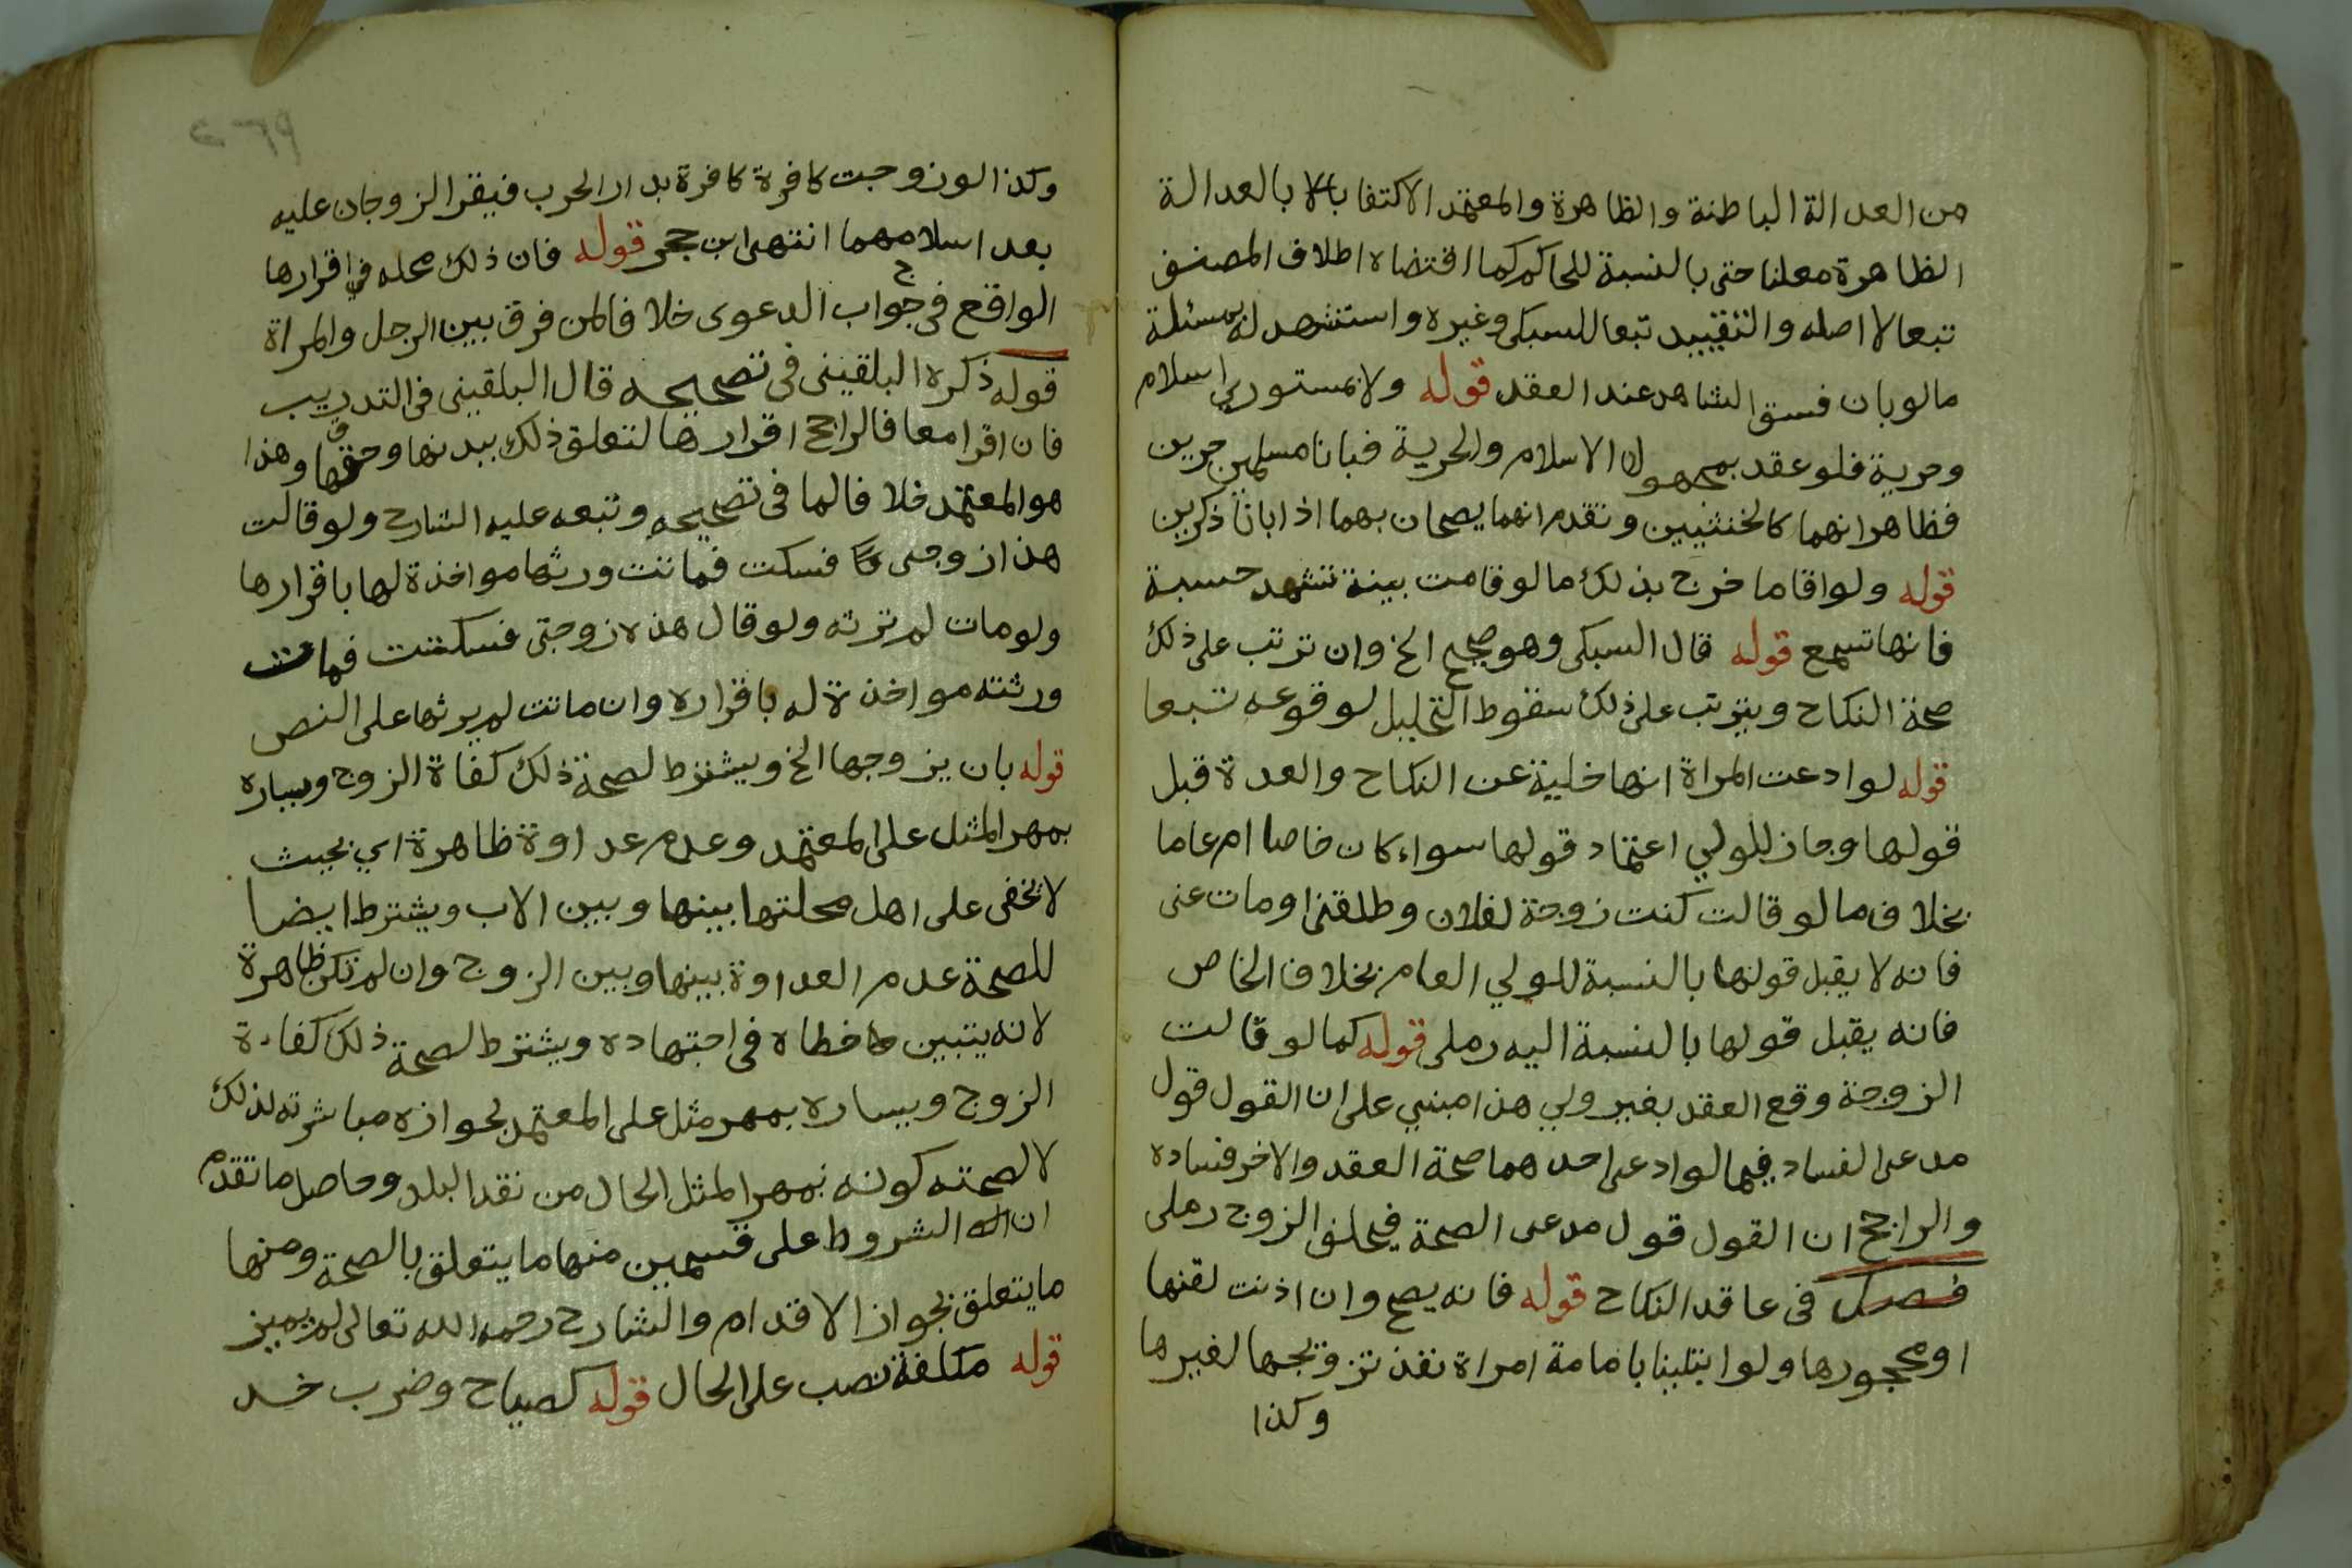 من العدالة الباطنة والظاهرة والمعتمد الاكتفا بالا بالعدالة
الظاهرة معلنا حتى بالنسبة للحاكم كما اقتضاه اطلاق المصنف
تبعا لاصله والتقييد تبعا للسبكى وغيره واستشهد له بمسئلة
مالو بان فسق الشاهد عند العقد قوله ولا بمستوري اسلام
وحرية فلو عقد بمجهولى الاسلام والحرية فبانا مسلمين حرين
فظاهر انهما كالخنثيين وتقدم انهما يصحان بهما اذا بانا ذكرين
قوله ولو اقاما خرج بذلك مالو قامت بينة تشهد حسبة
فانها تسمع قوله قال السبكى وهو صحيح الخ وان ترتب على ذلك
صحة النكاح ويترتب على ذلك سقوط التحليل لوقوعه تبعا
قوله لو ادعت المراة انها خلية عن النكاح والعدة قبل
قولها وجاز للولي اعتماد قولها سواء كان خاصا ام عاما
بخلاف مالو قالت كنت زوجة لفلان وطلقنى او مات عنى
فانه لا يقبل قولها بالنسبة للولي العام بخلاف الخاص
فانه يقبل قولها بالنسبة اليه رملى قوله كما لو قالت
الزوجة وقع العقد بغير ولي هذا مبني على ان القول قول
مدعى الفساد فيما لو ادعى احدهما صحة العقد والاخر فساده
والراجح ان القول قول مدعى الصحة فيحلف الزوج رملى
فصل فى عاقد النكاح قوله فانه يصح وان اذنت لقنها
او محجورها ولو ابتلينا بامامة امراة نفذ تزويجها لغيرها
وكذا
وكذا لو زوجت كافرة كافرة بدار الحرب فيقر الزوجان عليه
بعد اسلامهما انتهى ابن حجر قوله فان ذلك محله في اقرارها
الواقع فى جواب الدعوى خلافا لمن فرق بين الرجل والمراة
قوله ذكره البلقينى فى تصحيحه قال البلقينى فى التدريب
فان اقرا معا فالراجح اقرارها لتعلق ذلك ببدنها وحقها وهذا
هو المعتمد خلافا لما فى تصحيحه وتبعه عليه الشارح ولو قالت
هذا زوجى فسكت فماتت ورثها مواخذة لها باقرارها
ولو مات لم ترثه ولو قال هذه زوجتى فسكتت فمات
ورثته مواخذة له باقراره وان ماتت لم يرثها على النص
قوله بان يزوجها الخ ويشترط لصحة ذلك كفاة الزوج ويساره
بمهر المثل على المعتمد وعدم عداوة ظاهرة اي بحيث
لا تخفى على اهل محلتها بينها وبين الاب ويشترط ايضا
للصحة عدم العداوة بينها وبين الزوج وان لم تكن ظاهرة
لانه يتبين خطاه فى اجتهاده ويشترط لصحة ذلك كفاءة
الزوج ويساره بمهر مثل على المعتمد لجوازه مباشرته لذلك
لا لصحته كونه بمهر المثل الحال من نقد البلد وحاصل ما تقدم
ان الشروط على قسمين منها ما يتعلق بالصحة ومنها
ما يتعلق بجواز الاقدام والشارح رحمه الله تعالى لم يميز
قوله مكلفة نصب على الحال قوله كصياح وضرب خد